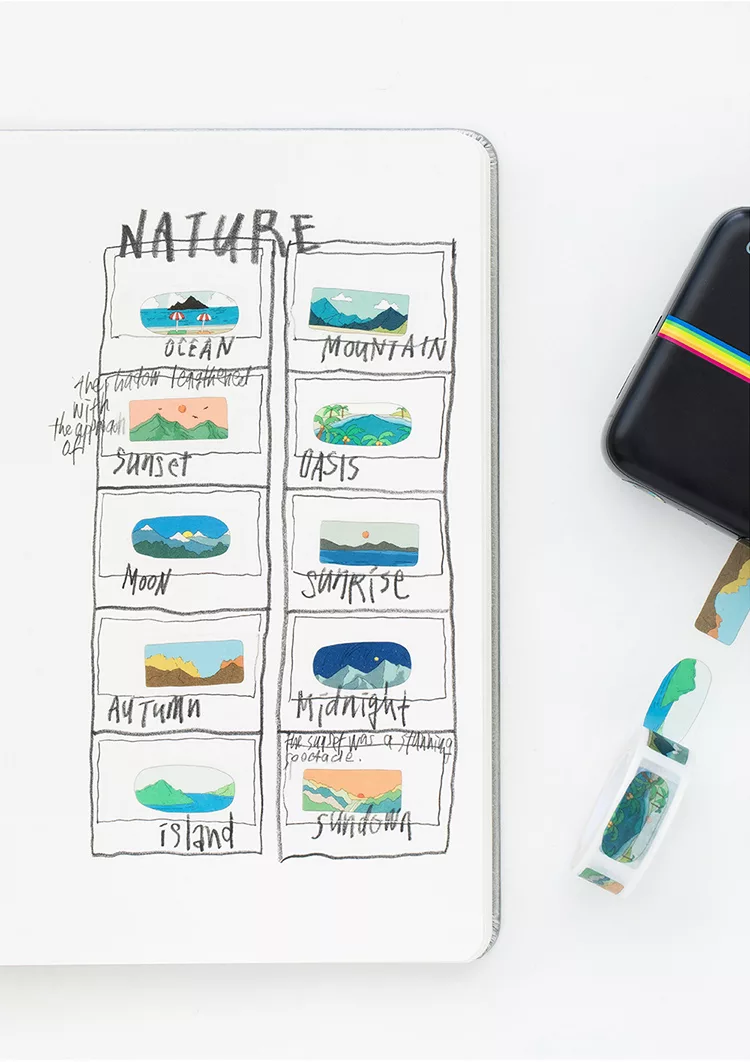 NATURE
OCEAN
MOUNTAIN
the shadow lengthened
with
the approach
of
Sunset
OASIS
MOON
SUNRISE
AUTUMN
Midnight
the sunset was a stunning
spectacle.
island
sundown